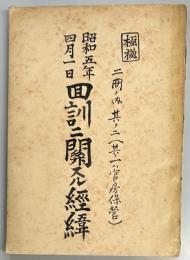 極秘
二冊ノ内其ノ二(其一ハ官房保管)
昭和五年
四月一日
回訓ニ関スル経緯